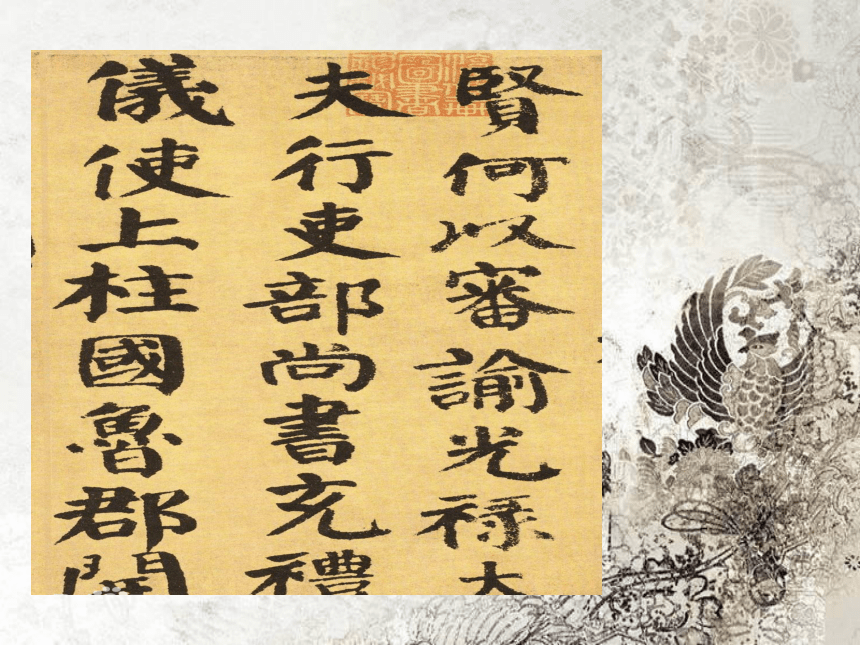 賢何以審諭光祿大
夫行吏部尚書充禮
儀使上柱國魯郡開